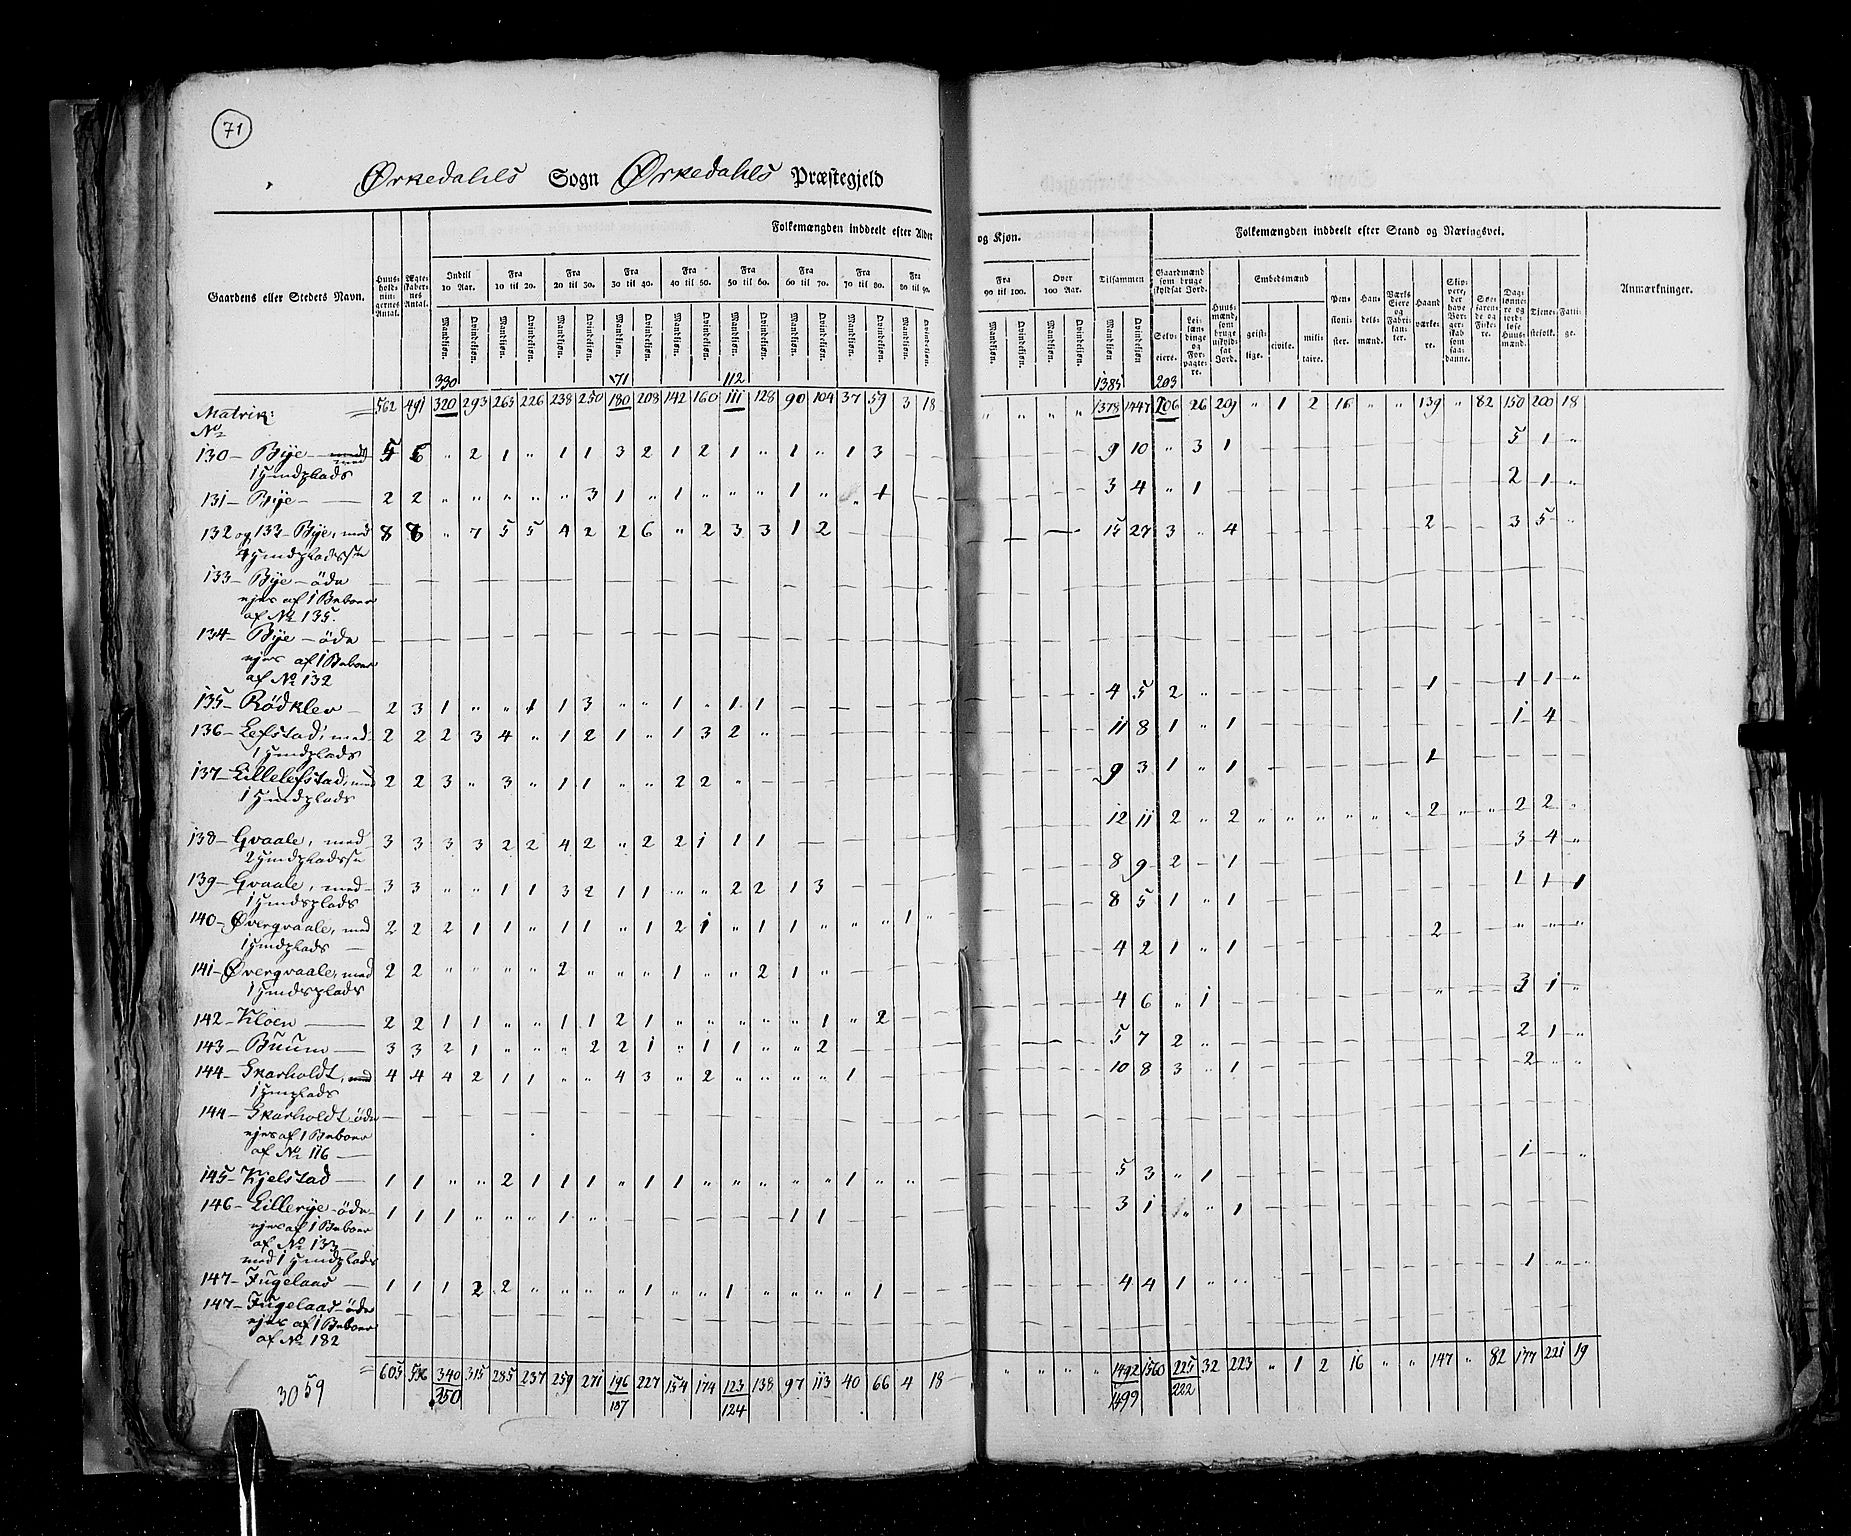 71
Ørkedahls Sogn Ørkedahls Præstegjeld
Gaardens eller Stedets Navn. Huusholdningernes Antal. Ægteskabernes Antal. Folkemængden inddeelt efter Alder og Kjøn. Tilsammen Folkemængden inddeelt efter Stand og Næringsvei. Anmærkninger.
Indtil 10 Aar. Fra 10 til 20. Fra 20 til 30. Fra 30 til 40. Fra 40 til 50. Fra 50 til 60. Fra 60 til 70. Fra 70 til 80. Fra 80 til 90. Fra 90 til 100. Over 100 Aar.
Gaardmænd som bruge skyldsat Jord. Embedsmænd
Mandkjøn. Qvindekjøn. Mandkjøn. Qvindekjøn. Mandkjøn. Qvindekjøn. Mandkjøn. Qvindekjøn. Mandkjøn. Qvindekjøn. Mandkjøn. Qvindekjøn. Mandkjøn. Qvindekjøn. Mandkjøn. Qvindekjøn. Mandkjøn. Qvindekjøn. Mandkjøn. Qvindekjøn. Mandkjøn. Qvindekjøn. Mandkjøn. Qvindekjøn.
Selveiere. Leilændinge og Forpagtere. Huusmænd, som bruge uskyldsat Jord. geistlige. civile. militaire. Pensionister. Handelsmænd. Værks Eiere og Fabrikanter. Haandværkere. Skippere, der have Borgerskab som saadanne. Søefarende og Fiskere. Daglønnere og jordløse Huusmænd. Tjenestefolk. Fattige.
330 171 112 1385 203
Matrik: = 562 491 320 293 263 226 238 250 180 208 142 160 111 128 90 104 37 59 3 18 " " " " 1378 1447 206 26 209 " 1 2 16 " " 139 " 82 150 200 18
No
130 – Bye – med 5 6 " 2 1 " 1 1 3 2 1 2 1 " 1 " 1 3 – – 9 10 " 3 1 5 1 "
131 – Bye – 2 2 " " " " " 3 1 " 1 " " " 1 " " 1 – 3 4 " 1 – 2 1 "
132 og 133 – Bye, med 8 8 " 7 5 5 4 2 2 6 " 2 3 3 1 2 – 15 27 3 " 4 2 3 5 "
133 – Bye – öde
af No 135.
134 – Bye – öde
af No 132
135 – Rödklev – 2 3 1 " " 1 1 3 " " 1 " 1 1 – 4 5 2 " – 1 1 1 "
136 – Lefstad, med 2 2 2 3 4 " 1 2 1 " 1 3 2 " – 11 8 1 " 1 1 4 –
137 – Lillelefstad, med 2 2 3 " 3 " 1 1 " " 2 2 " – 9 3 1 " 1 1
138 – Gvaale, med 3 3 3 3 2 2 4 2 " 2 2 1 1 1 – 12 11 2 " 2 " " " " " " 2 " " 2 2 "
139 – Gvaale, med 3 3 " " 1 1 3 2 1 1 " " 2 2 1 3 – 8 9 2 – 1 3 4 "
140 – Øvergvaale, med 2 2 2 1 1 " 1 1 " 1 2 1 " 1 1 " " " 1 " 8 5 1 " 1 1 1 1
141 – Øvergvaale, med 2 2 " " " " 2 " " " 1 " " 2 1 " – 4 2 1 " 1 2 " " "
142 – Kloen – 2 2 1 1 " " 1 1 2 1 " " " " " 1 " 2 – 4 6 " 1 – " 3 1 "
143 – Buum – 3 3 2 1 " " " 2 2 1 " 1 1 " " 2 – 5 7 2 " 2 1 "
144 – Skarholdt, med 4 4 4 2 1 1 " " 4 3 " 2 " " " " 1 – 10 8 3 " 1 2 "
144 – Skarholdt öde
af No 116 –
145 – Kjelstad – 1 1 " " 2 1 1 1 " 1 1 " " " " " 1 " " – 5 3 " 1 – 1 "
146 – Lillerye – öde 1 1 1 " " " 1 " – 1 1 – 3 1 " " 1
af No 133
147 – Fugelaas – 1 1 1 2 2 " " " " 1 " " 1 " " " " 1 – 4 4 1 " 1 " "
147 – Fugelaas – öde
af No 182
= 605 536 340 315 285 237 259 271 196 227 154 174 123 138 97 113 40 66 4 18 " " " " 1492 1560 225 32 223 " 1 2 16 " " 147 " 82 177 221 19
350 187 124 1499 222
3059